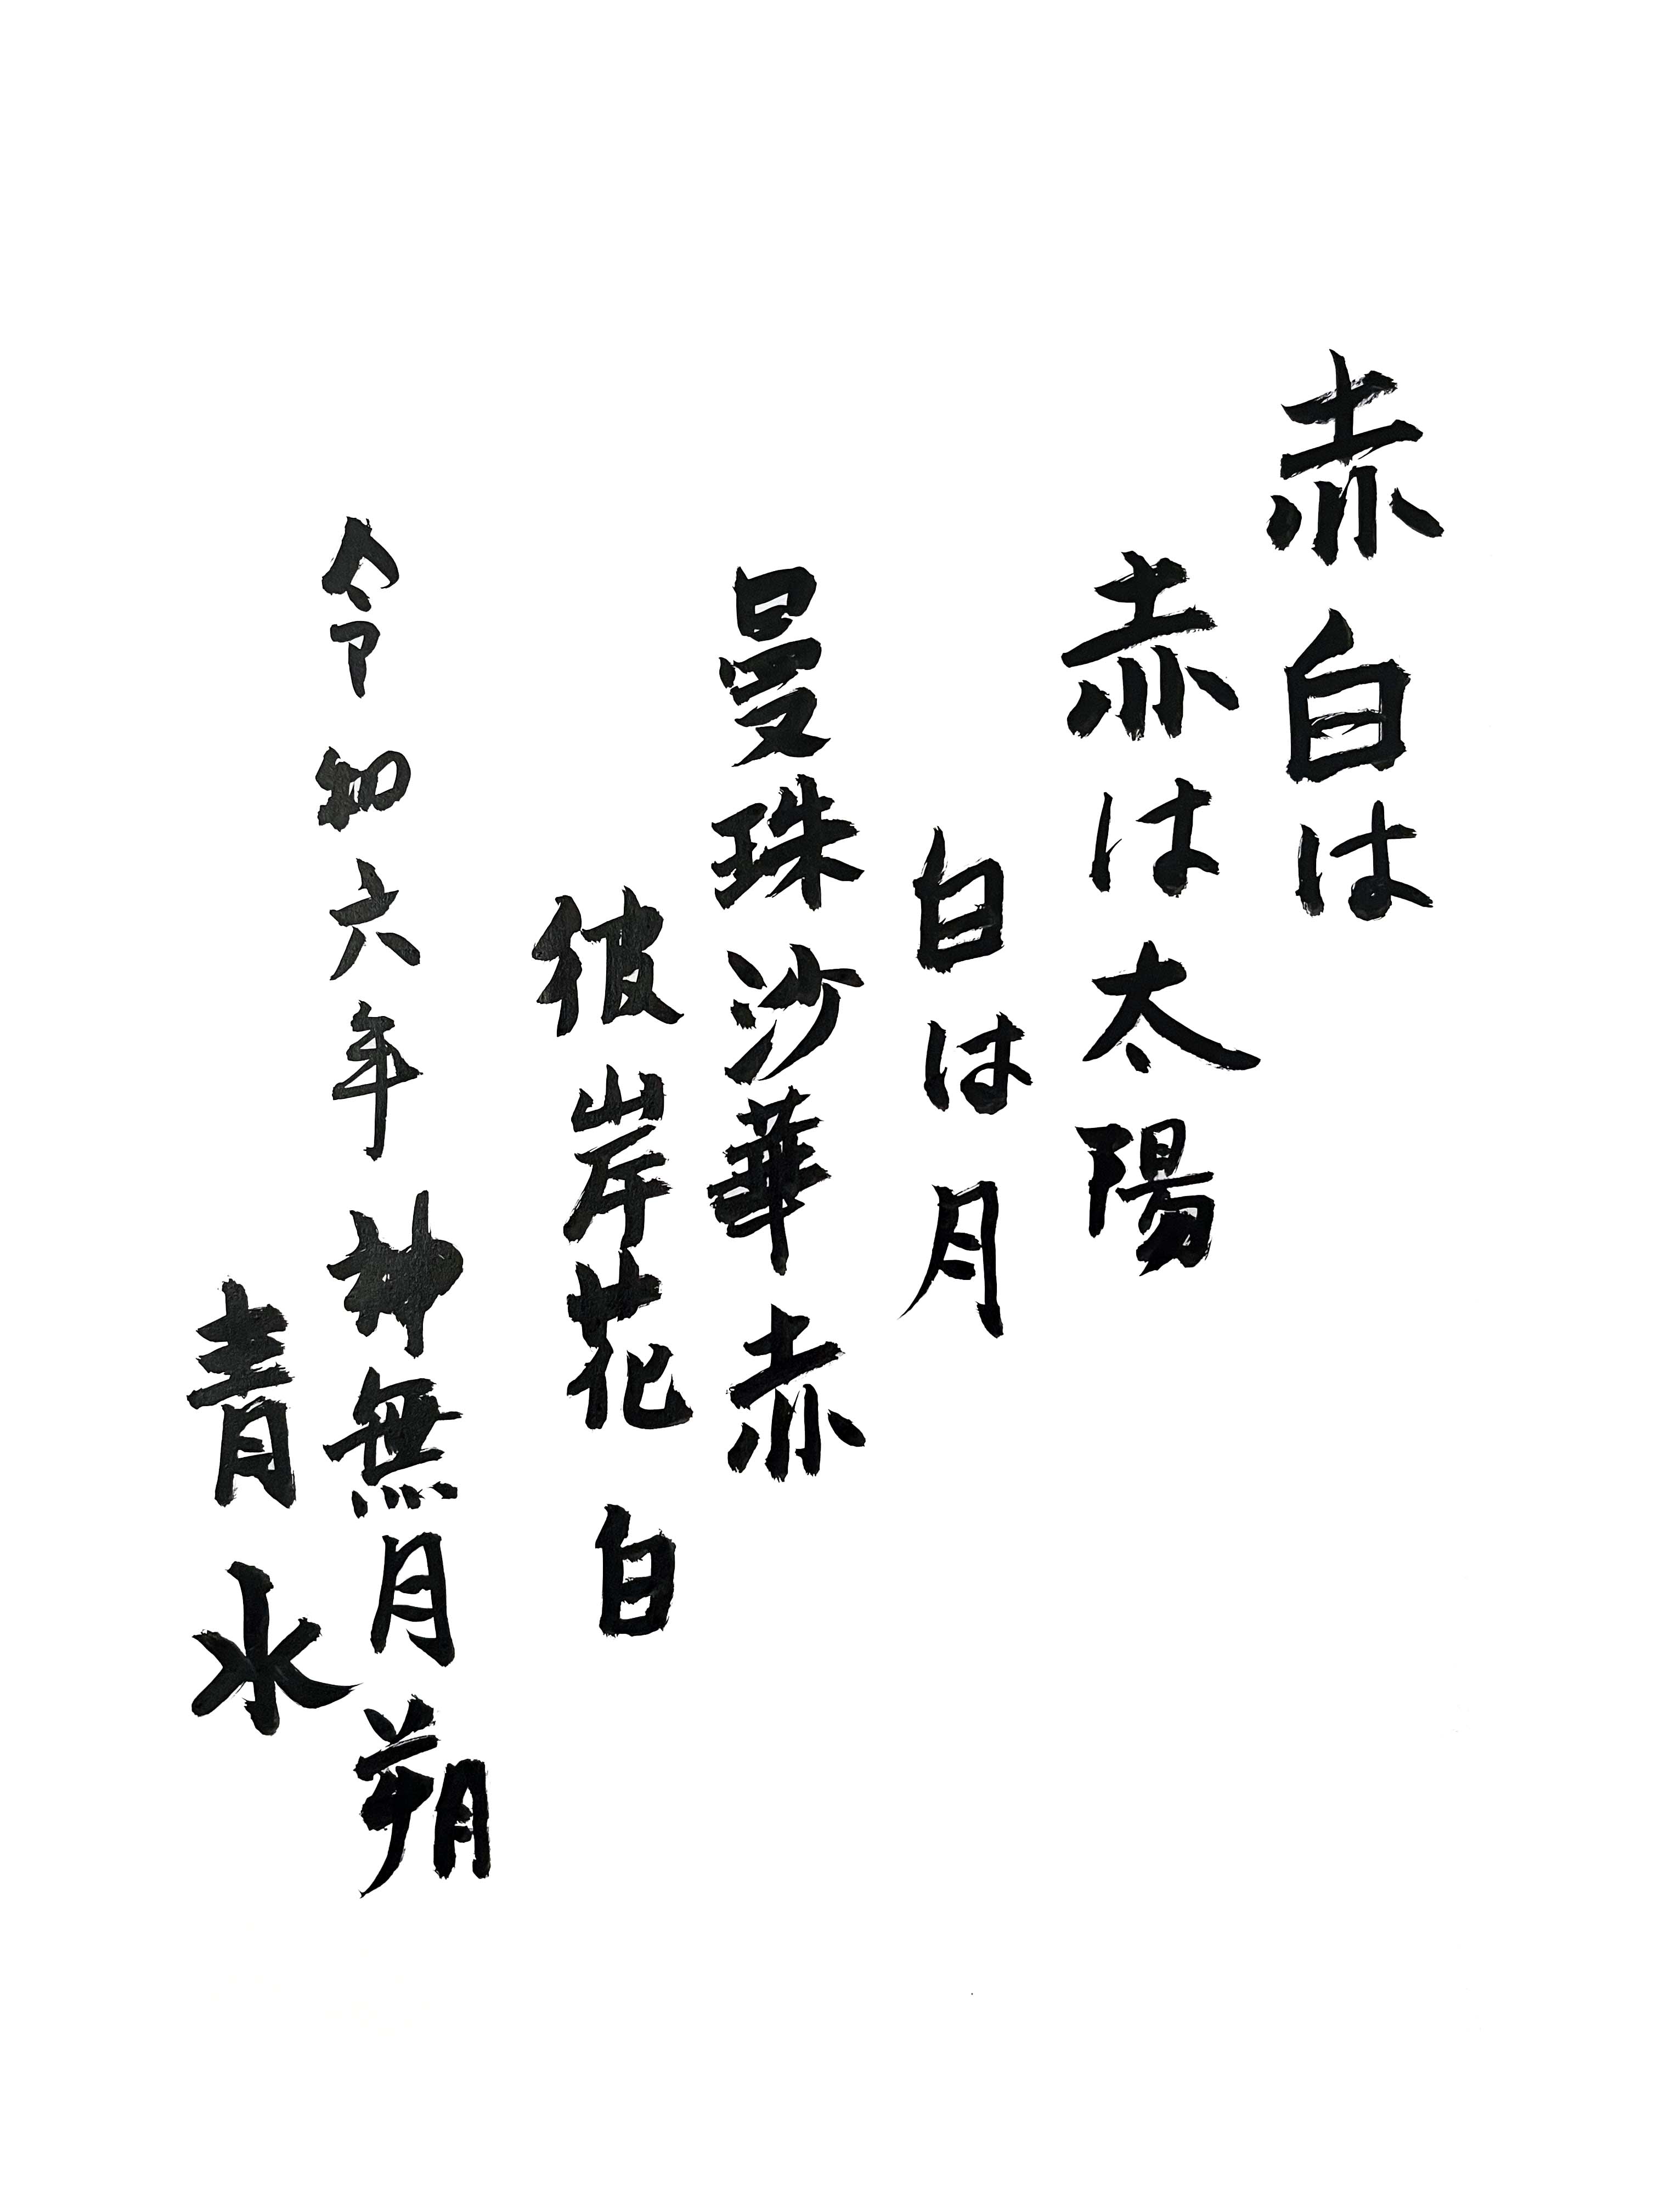 赤白は
赤は太陽
白は月
曼珠沙華赤
彼岸花白
令和六年神無月朔
青水